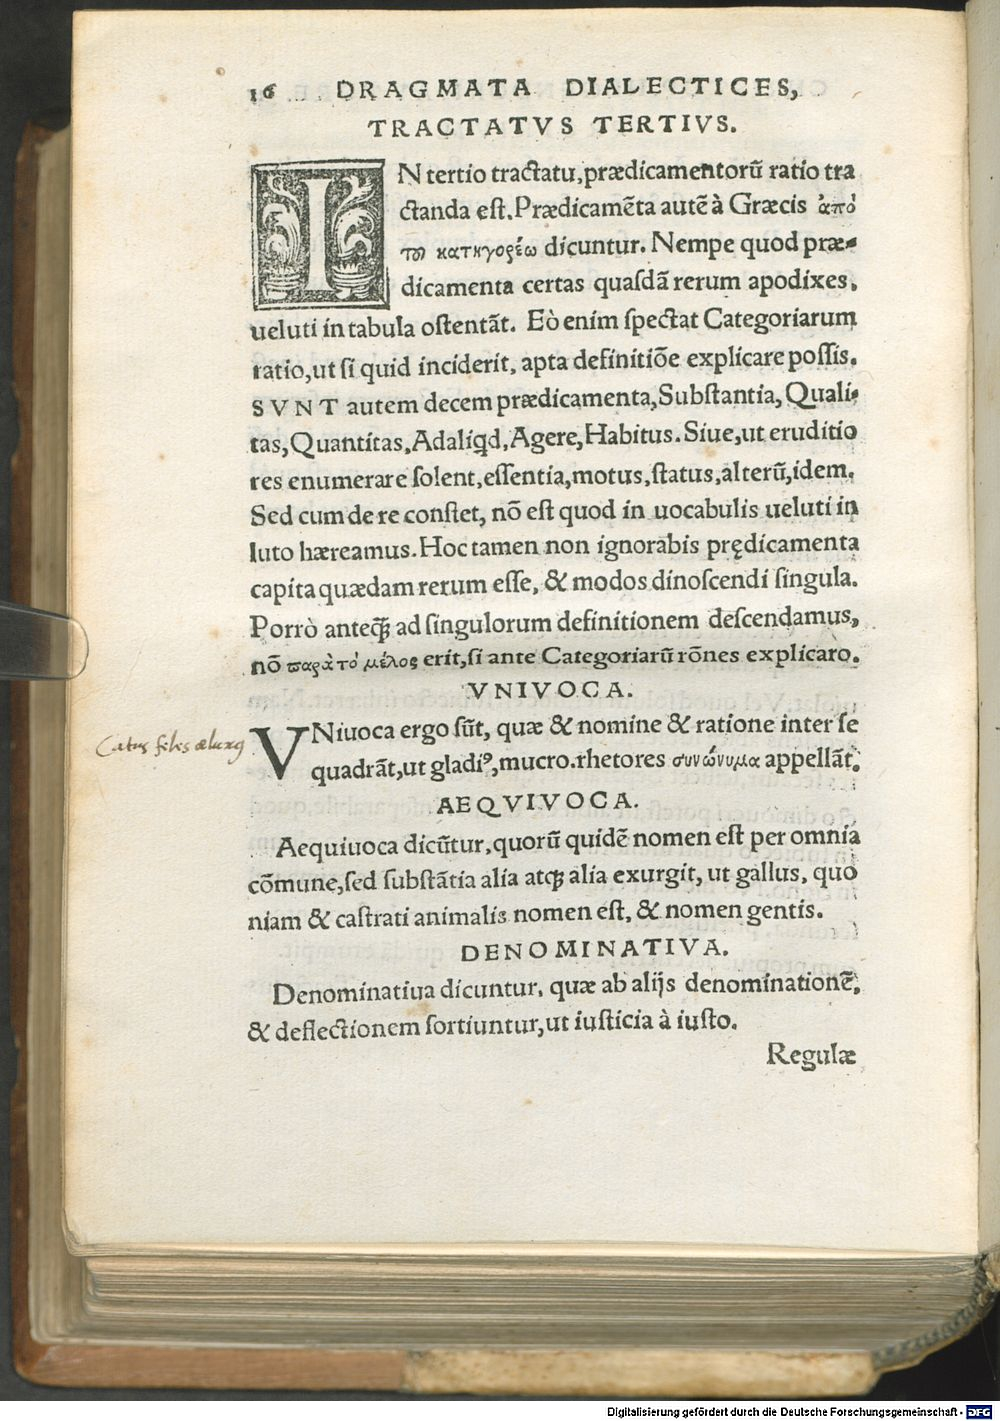 16 DRAGMATA DIALECTICES,
TRACTATVS TERTIVS.
IN tertio tractatu, prædicamentorũ ratio tra
ctanda est. Prædicamẽta autẽ à Græcis ἀπὸ
τοῦ κατηγορέω dicuntur. Nempe quod præ-
dicamenta certas quasdã rerum apodixes,
ueluti in tabula ostentãt. Eò enim spectat Categoriarum
ratio, ut si quid inciderit, apta definitiõe explicare possis.
SVNT autem decem prædicamenta, Substantia, Quali-
tas, Quantitas, Adaliqd, Agere, Habitus. Siue, ut eruditio
res enumerare solent, essentia, motus, status, alterũ, idem.
Sed cum de re constet, nõ est quod in uocabulis ueluti in
luto hæreamus. Hoc tamen non ignorabis prędicamenta
capita quædam rerum esse, & modos dinoscendi singula.
Porrò anteq̃ ad singulorum definitionem descendamus,
nõ παρὰ τὸ μέλος erit, si ante Categoriarũ rõnes explicaro.
VNIVOCA.
VNiuoca ergo sũt, quæ & nomine & ratione inter se
Catus feles ælurꝰ
quadrãt, ut gladiꝰ, mucro. rhetores συνώνυμα appellãt.
AEQVIVOCA.
Aequiuoca dicũtur, quorũ quidẽ nomen est per omnia
cõmune, sed substãtia alia atqꝫ alia exurgit, ut gallus, quo
niam & castrati animalis nomen est, & nomen gentis.
DENOMINATIVA.
Denominatiua dicuntur, quæ ab alijs denominationẽ,
& deflectionem sortiuntur, ut iusticia à iusto.
Regulæ
Digitalisierung gefördert durch die Deutsche Forschungsgemeinschaft - DFG